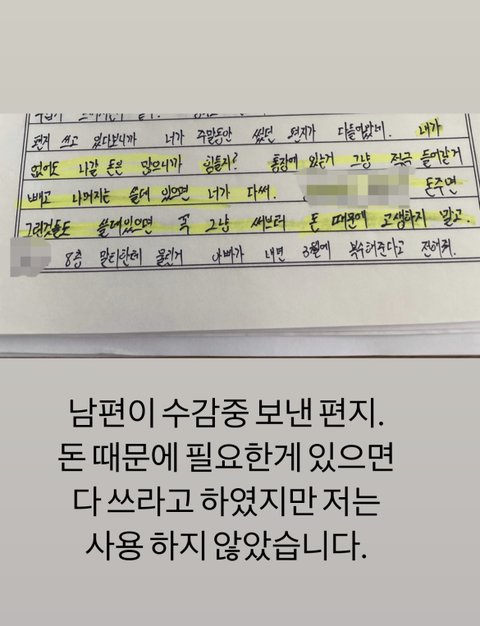 편지 쓰고 있다보니까 너가 주말동안 썼던 편지가 다들어왔네. 내가
없어도 나갈 돈은 많으니까 힘들지? 통장에 있는거 그냥 적금 들어간거
빼고 나머지는 쓸데 있으면 너가 다써. 돈주면
그런것들도 쓸데있으면 꼭 그냥 써 돈 때문에 고생하지 말고.
8층 말티한테 물린거 아빠가 내년 3월에 복수해준다고 전해줘.
남편이 수감중 보낸 편지.
돈 때문에 필요한게 있으면
다 쓰라고 하였지만 저는
사용 하지 않았습니다.